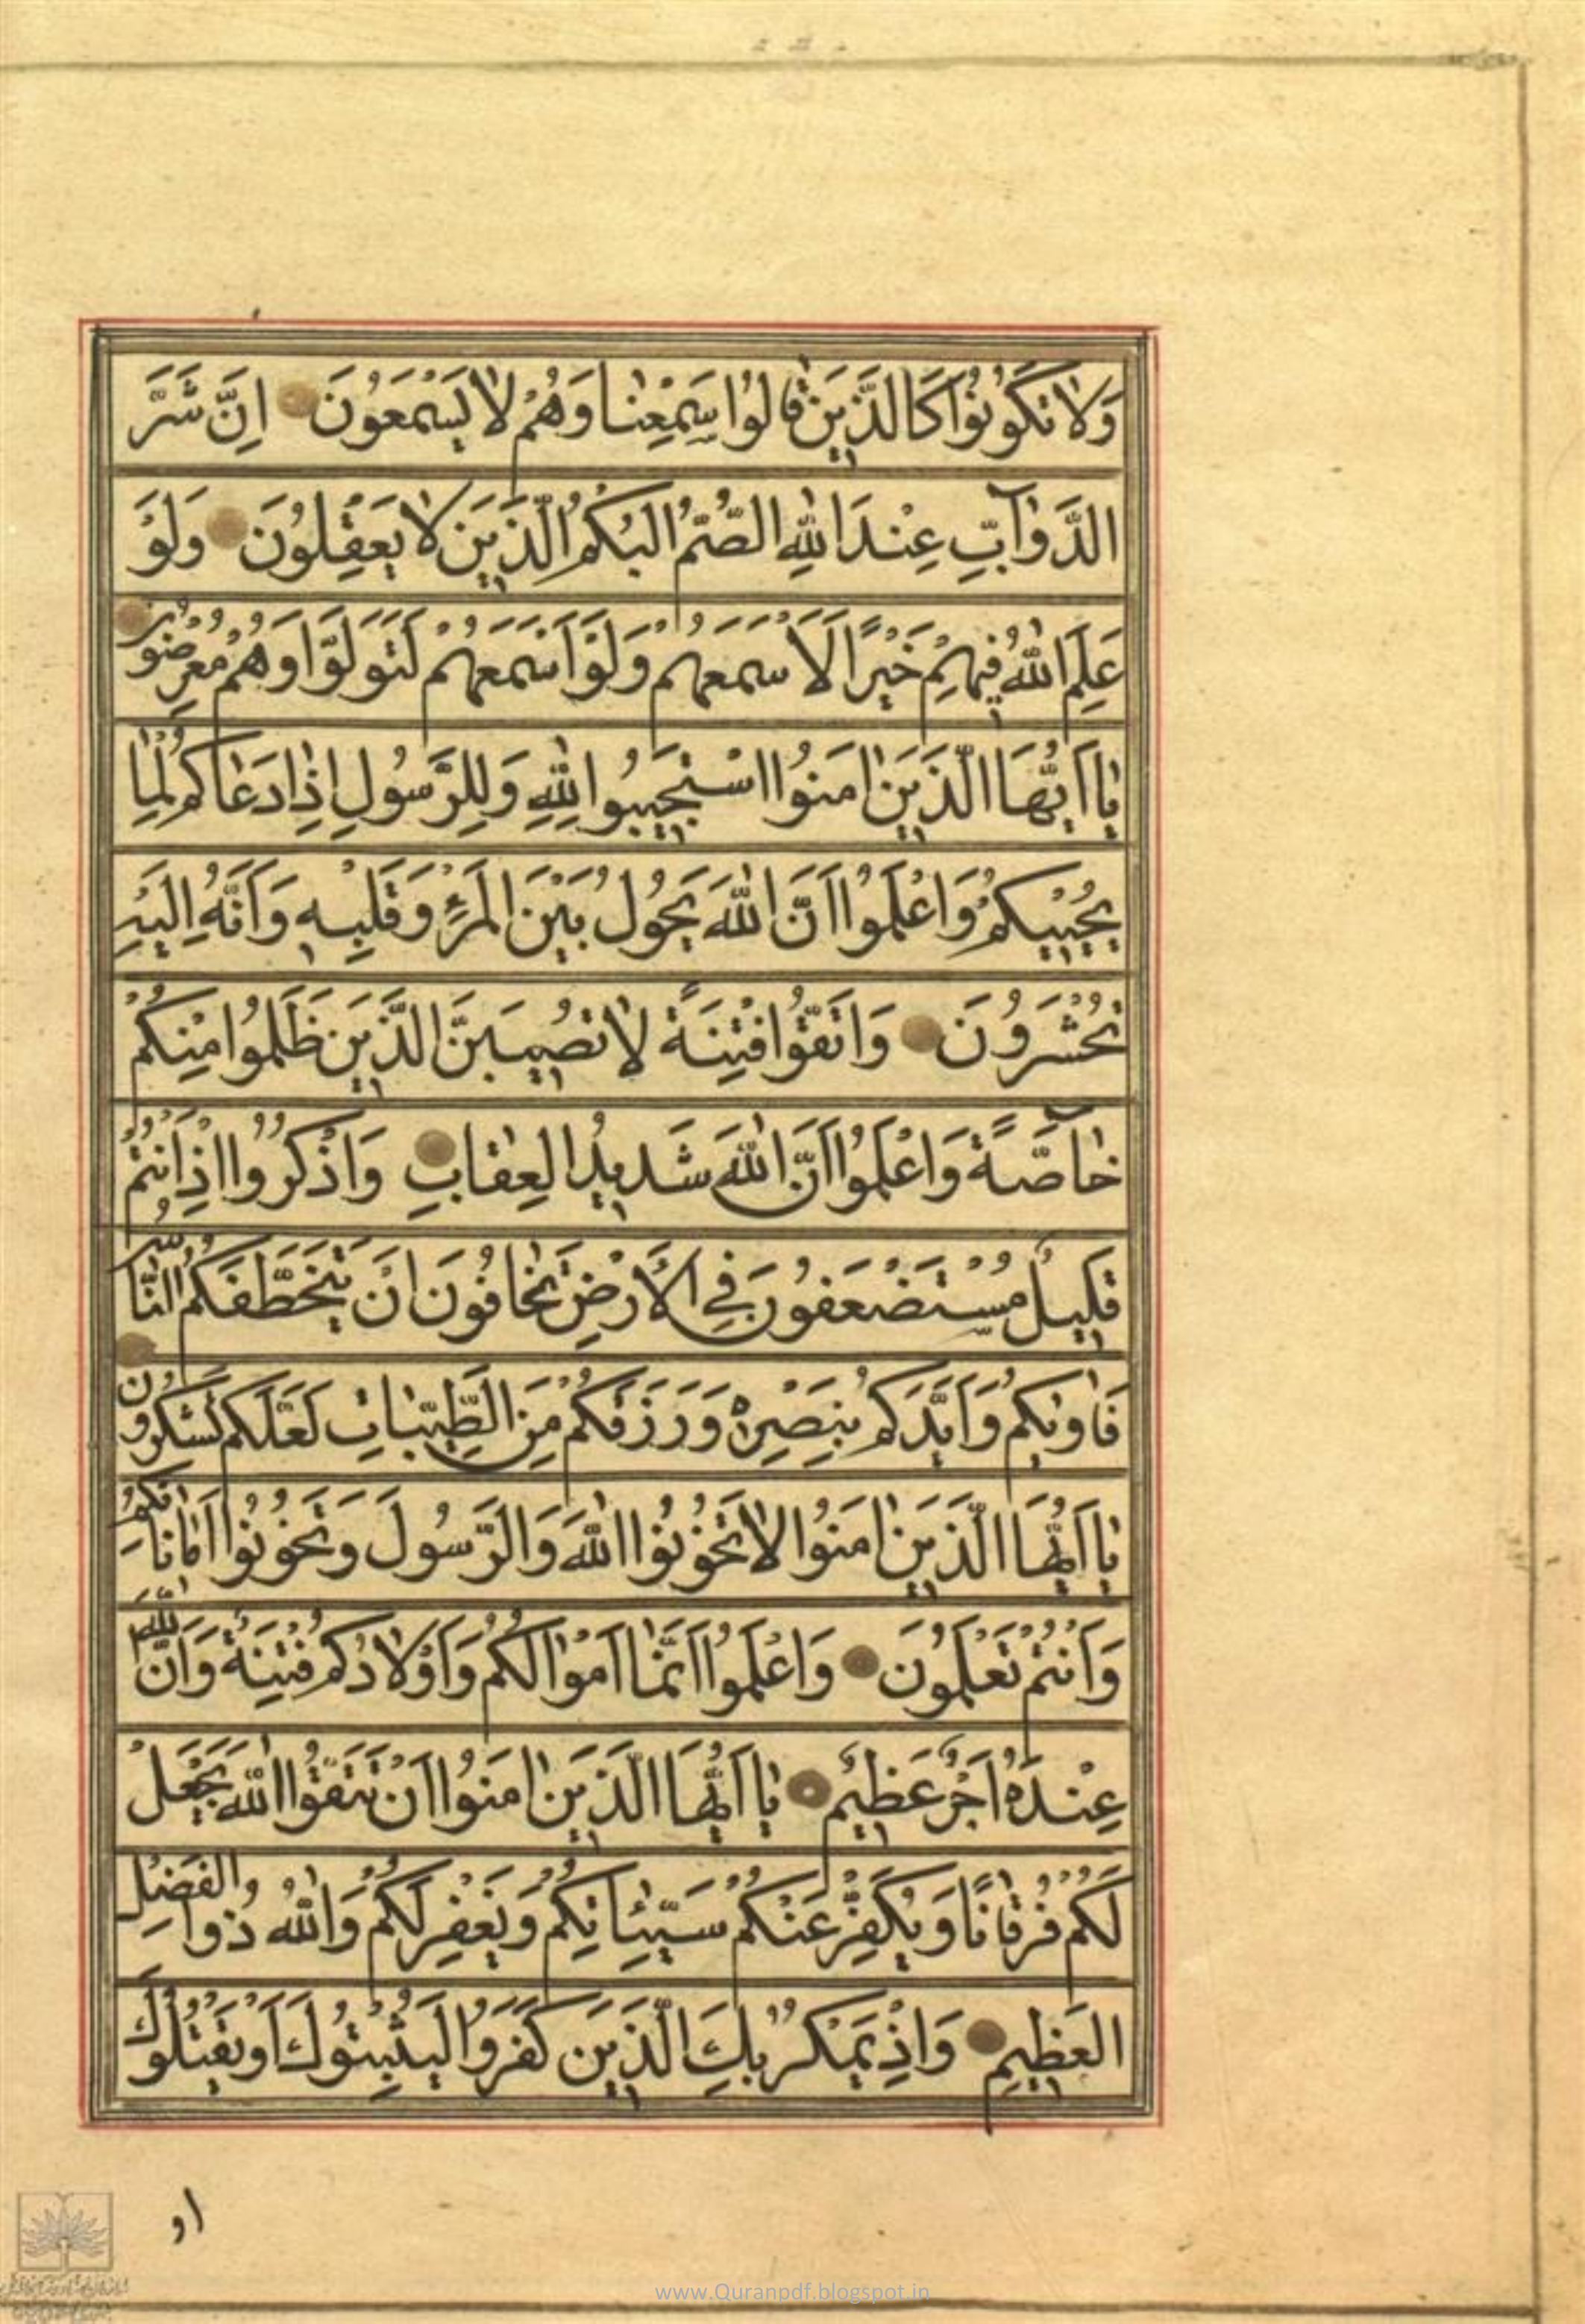 وَلَا تَكُونُوا كَالَّذِينَ قَالُوا سَمِعْنَا وَهُمْ لَا يَسْمَعُونَ اِنَّ شَرَّ
الدَّوَآبِّ عِنْدَ اللهِ الصُّمُّ الْبُكْمُ الَّذِينَ لَا يَعْقِلُونَ وَلَوْ
عَلِمَ اللهُ فِيهِمْ خَيْرًا لَاَسْمَعَهُمْ وَلَوْ اَسْمَعَهُمْ لَتَوَلَّوْا وَهُمْ مُعْرِضُونَ
يَا اَيُّهَا الَّذِينَ امَنُوا اسْتَجِيبُوا لِلّٰهِ وَلِلرَّسُولِ اِذَا دَعَاكُمْ لِمَا
يُحْيِيكُمْ وَاعْلَمُوا اَنَّ اللهَ يَحُولُ بَيْنَ الْمَرْءِ وَقَلْبِهِ وَاَنَّهُ اِلَيْهِ
تُحْشَرُونَ وَاتَّقُوا فِتْنَةً لَا تُصِيبَنَّ الَّذِينَ ظَلَمُوا مِنْكُمْ
خَاصَّةً وَاعْلَمُوا اَنَّ اللهَ شَدِيدُ الْعِقَابِ وَاذْكُرُوا اِذْ اَنْتُمْ
قَلِيلٌ مُسْتَضْعَفُونَ فِي الْاَرْضِ تَخَافُونَ اَنْ يَتَخَطَّفَكُمُ النَّاسُ
فَاوٰيكُمْ وَاَيَّدَكُمْ بِنَصْرِهِ وَرَزَقَكُمْ مِنَ الطَّيِّبَاتِ لَعَلَّكُمْ تَشْكُرُونَ
يَا اَيُّهَا الَّذِينَ امَنُوا لَا تَخُونُوا اللهَ وَالرَّسُولَ وَتَخُونُوا اَمَانَاتِكُمْ
وَاَنْتُمْ تَعْلَمُونَ وَاعْلَمُوا اَنَّمَا اَمْوَالُكُمْ وَاَوْلَادُكُمْ فِتْنَةٌ وَاَنَّ اللهَ
عِنْدَهُ اَجْرٌ عَظِيمٌ يَا اَيُّهَا الَّذِينَ امَنُوا اَنْ تَتَّقُوا اللهَ يَجْعَلْ
لَكُمْ فُرْقَانًا وَيُكَفِّرْ عَنْكُمْ سَيِّئَاتِكُمْ وَيَغْفِرْ لَكُمْ وَاللهُ ذُوا الْفَضْلِ
الْعَظِيمِ وَاِذْ يَمْكُرُ بِكَ الَّذِينَ كَفَرُوا لِيُثْبِتُوكَ اَوْ يَقْتُلُوكَ
او
www.Quranpdf.blogspot.in